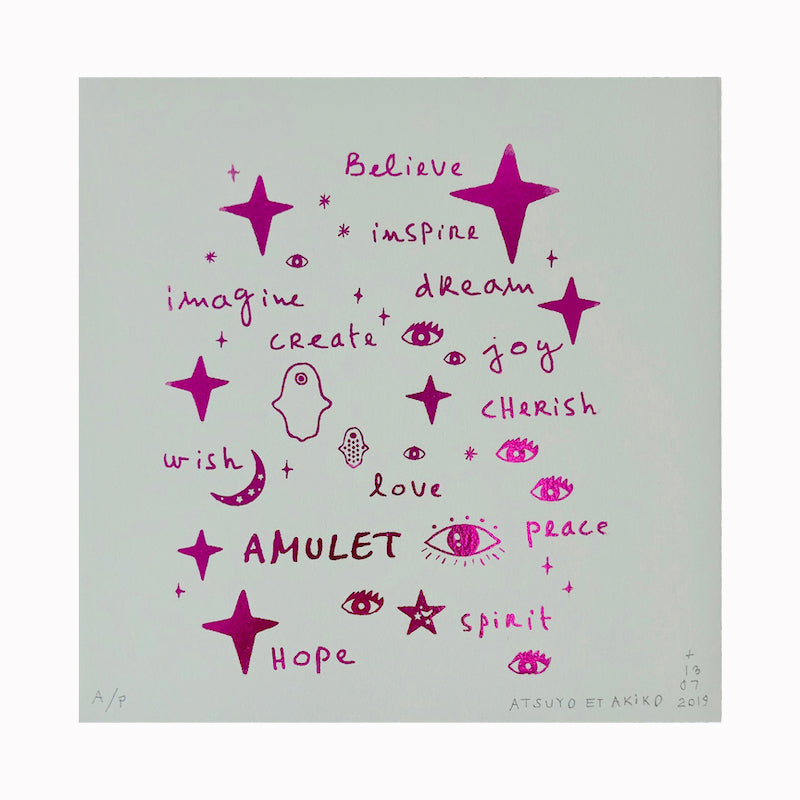 Believe
inspire
imagine
dream
create
joy
cherish
wish
love
peace
AMULET
spirit
Hope
A/P
ATSUYO ET AKIKO
+
13
07
2019